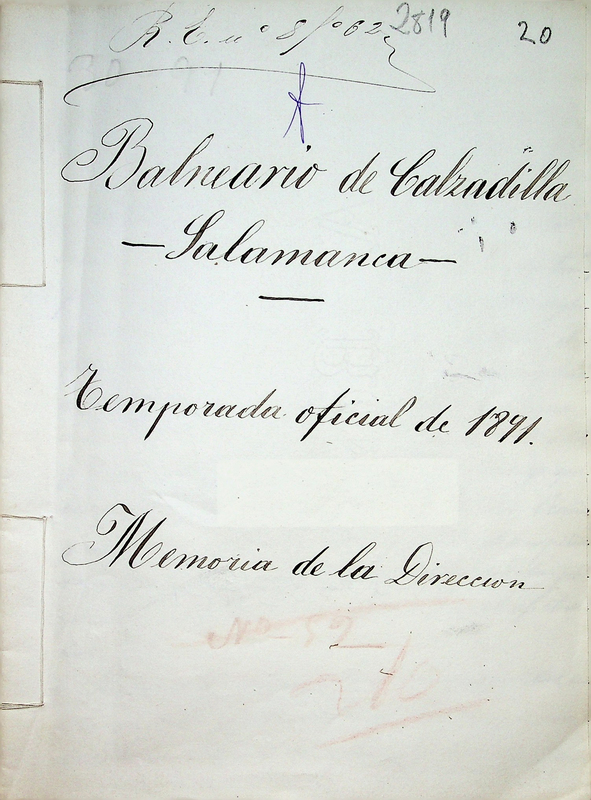 R. E. nº 8 fº 62
2819
20
Balneario de Calzadilla
— Salamanca —
Temporada oficial de 1891.
Memoria de la Direccion
Nº 52